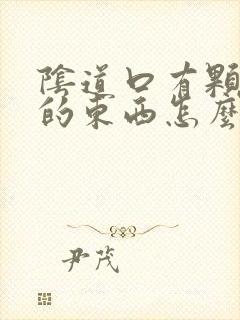 陰道口有顆
的東西怎麼
尹茂